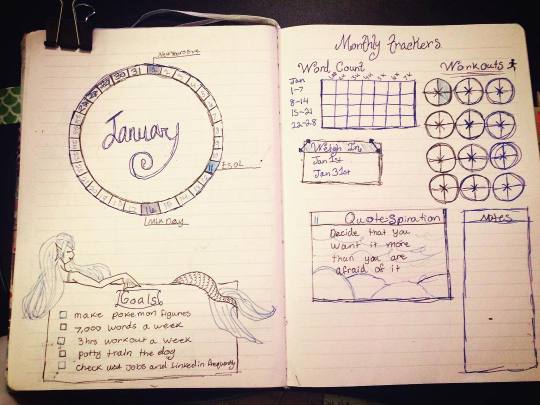 January
MLK Day
Goals
make pokemon figures
7,000 words a week
3hrs workout a week
potty train the dog
check usa jobs and linkedin frequently
Monthly trackers
Word Count
Jan
1-7
8-14
15-21
22-28
Workouts
Weigh In
Jan 1st
Jan 31st
Quote-Spiration
Decide that you
want it more
than you are
afraid of it
Notes